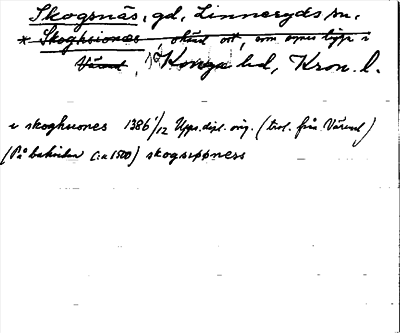 Skogsnäs, gd, Linneryds sn,
* Skoghsiones okänd ort, som synes ligga i
Värend, Konga hd, Kron. l.
i skoghuones 1386 1/12 Upps. dipl. orig. (trol. från Värend)
(På baksidan c:a 1500) skogsæpness